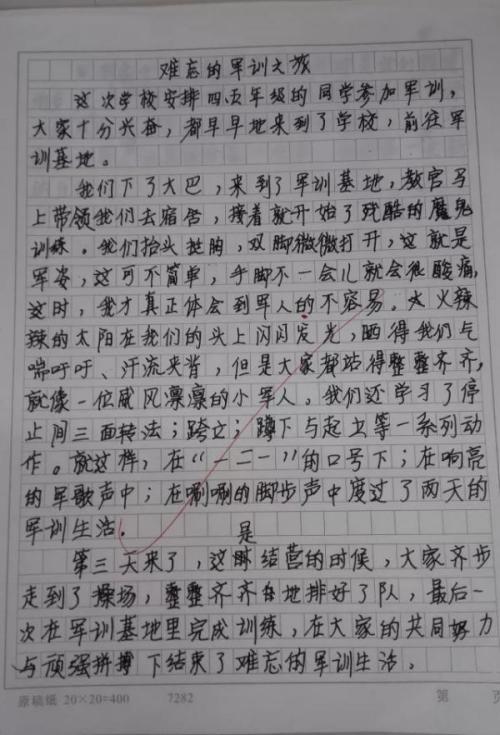 难忘的军训之旅
这次学校安排四、五年级的同学参加军训,
大家十分兴奋,都早早地来到了学校,前往军
训基地。
我们下了大巴,来到了军训基地,教官马
上带领我们去宿舍,接着就开始了残酷的魔鬼
训练。我们抬头挺胸,双脚微微打开,这就是
军姿,这可不简单,手脚不一会儿就会很酸痛,
这时,我才真正体会到军人的不容易。火辣
辣的太阳在我们的头上闪闪发光,晒得我们气
喘吁吁、汗流夹背,但是大家都站得整整齐齐,
就像一位威风凛凛的小军人,我们还学习了停
止间三面转法;跨立;蹲下与起立等一系列动
作。就这样,在“一二一”的口号下;在响亮
的军歌声中;在唰唰的脚步声中度过了两天的
军训生活。
第三天来了,这是结营的时候,大家齐步
走到了操场,整整齐齐地排好了队,最后一
次在军训基地里完成训练,在大家的共同努力
与顽强拼搏下结束了难忘的军训生活。
原稿纸 20×20=400 7282 第 页